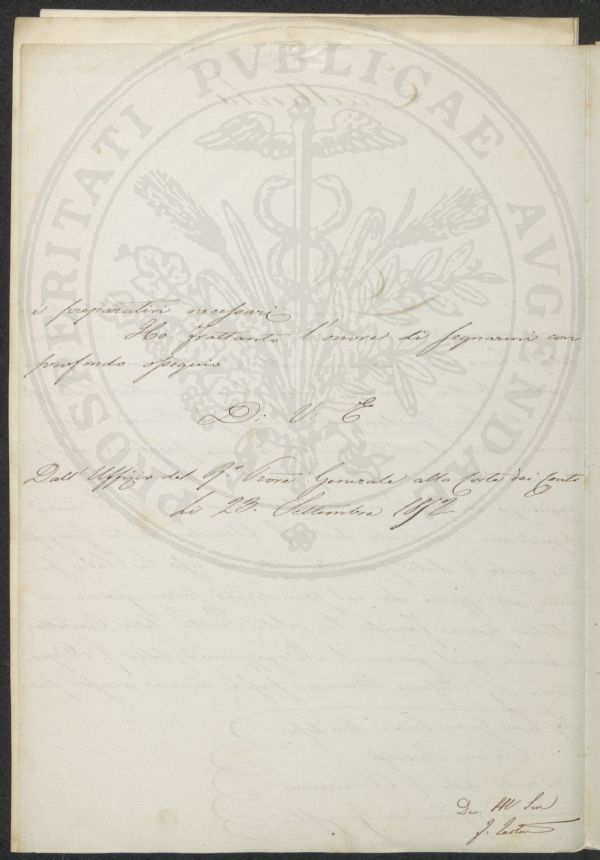 PROSPERITATI PVBLICAE AVGENDAE
i preparativi necessari
Ho frattanto l'onore di segnarmi con
profondo ossequio
Di V. E.
Dall' Uffizio del R.° Proc.re Generale alla Corte dei Conti
li 23. Settembre 1852
Dev.